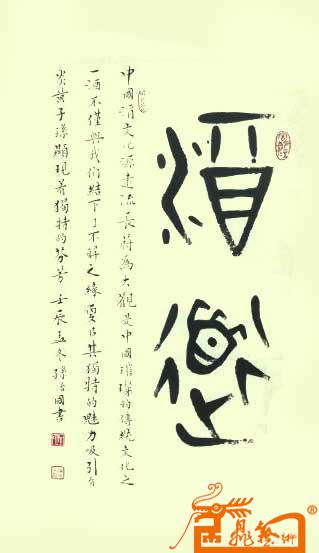 酒道
中國酒文化源遠流長蔚為大觀是中國璀璨的傳統文化之
一酒不僅與我們結下了不解之緣更以其獨特的魅力吸引着
炎黃子孫顯現着獨特的芬芳 壬辰孟冬孫治國書